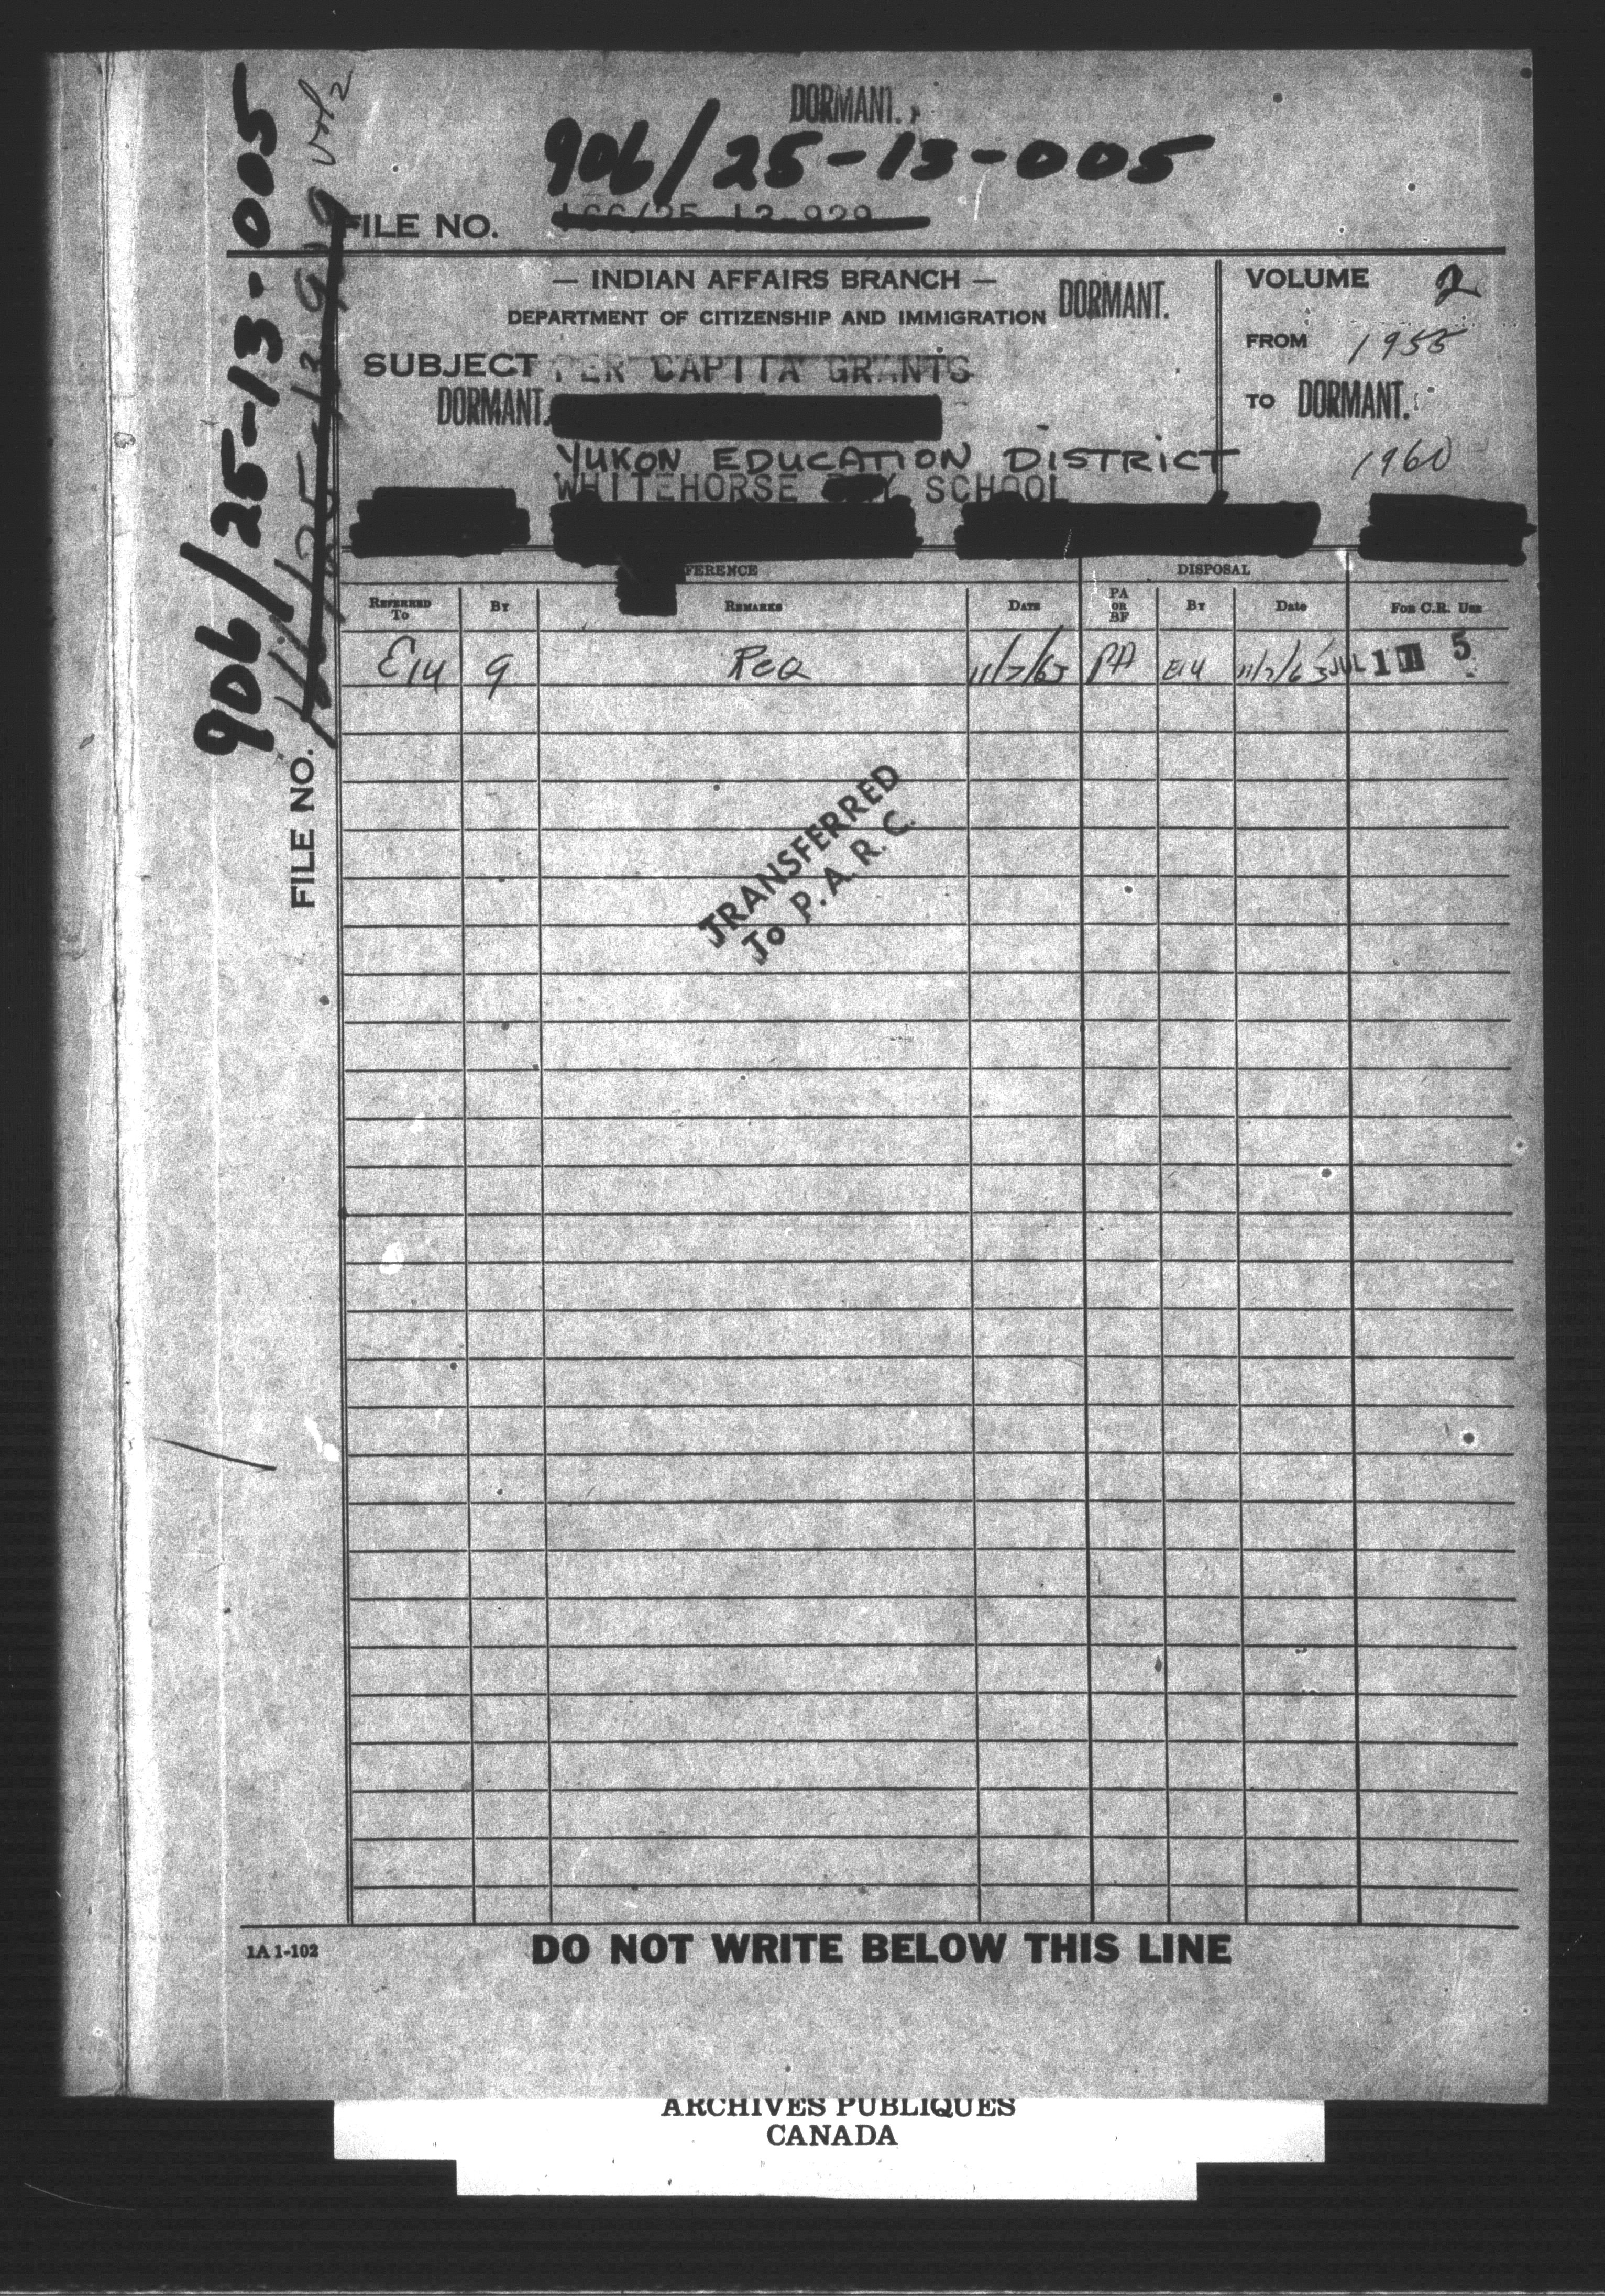 DORMANT.
906/25-13-005
FILE NO.
— INDIAN AFFAIRS BRANCH —
DEPARTMENT OF CITIZENSHIP AND IMMIGRATION
DORMANT.
VOLUME 2
FROM 1955
SUBJECT PER CAPITA GRANTS
DORMANT.
TO DORMANT.
1960
YUKON EDUCATION DISTRICT
WHITEHORSE SCHOOL
FERENCE DISPOSAL
REFERRED To BY REMARKS DATE PA OR BF BY Date FOR C.R. USE
E14 9 Req 11/7/63 PA E14 11/7/63 JUL 11 5
TRANSFERRED
To P.A.R.C.
906/25-13-005
vol 2
FILE NO.
1A 1-102
DO NOT WRITE BELOW THIS LINE
ARCHIVES PUBLIQUES
CANADA